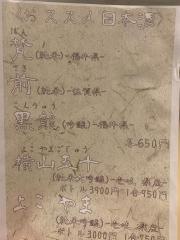 〈おススメ日本酒〉
ぼん
梵
(純米)-福井県-
前
(純米)-佐賀県-
こくりゅう
黒龍
(吟醸)-福井県-
各650円
よこやまごじゅう
横山五十
(純米大吟醸)-壱岐、長崎-
ボトル3900円 1合950円
よこやま
(純米吟醸)-壱岐、長崎-
ボトル3000円 1合750円